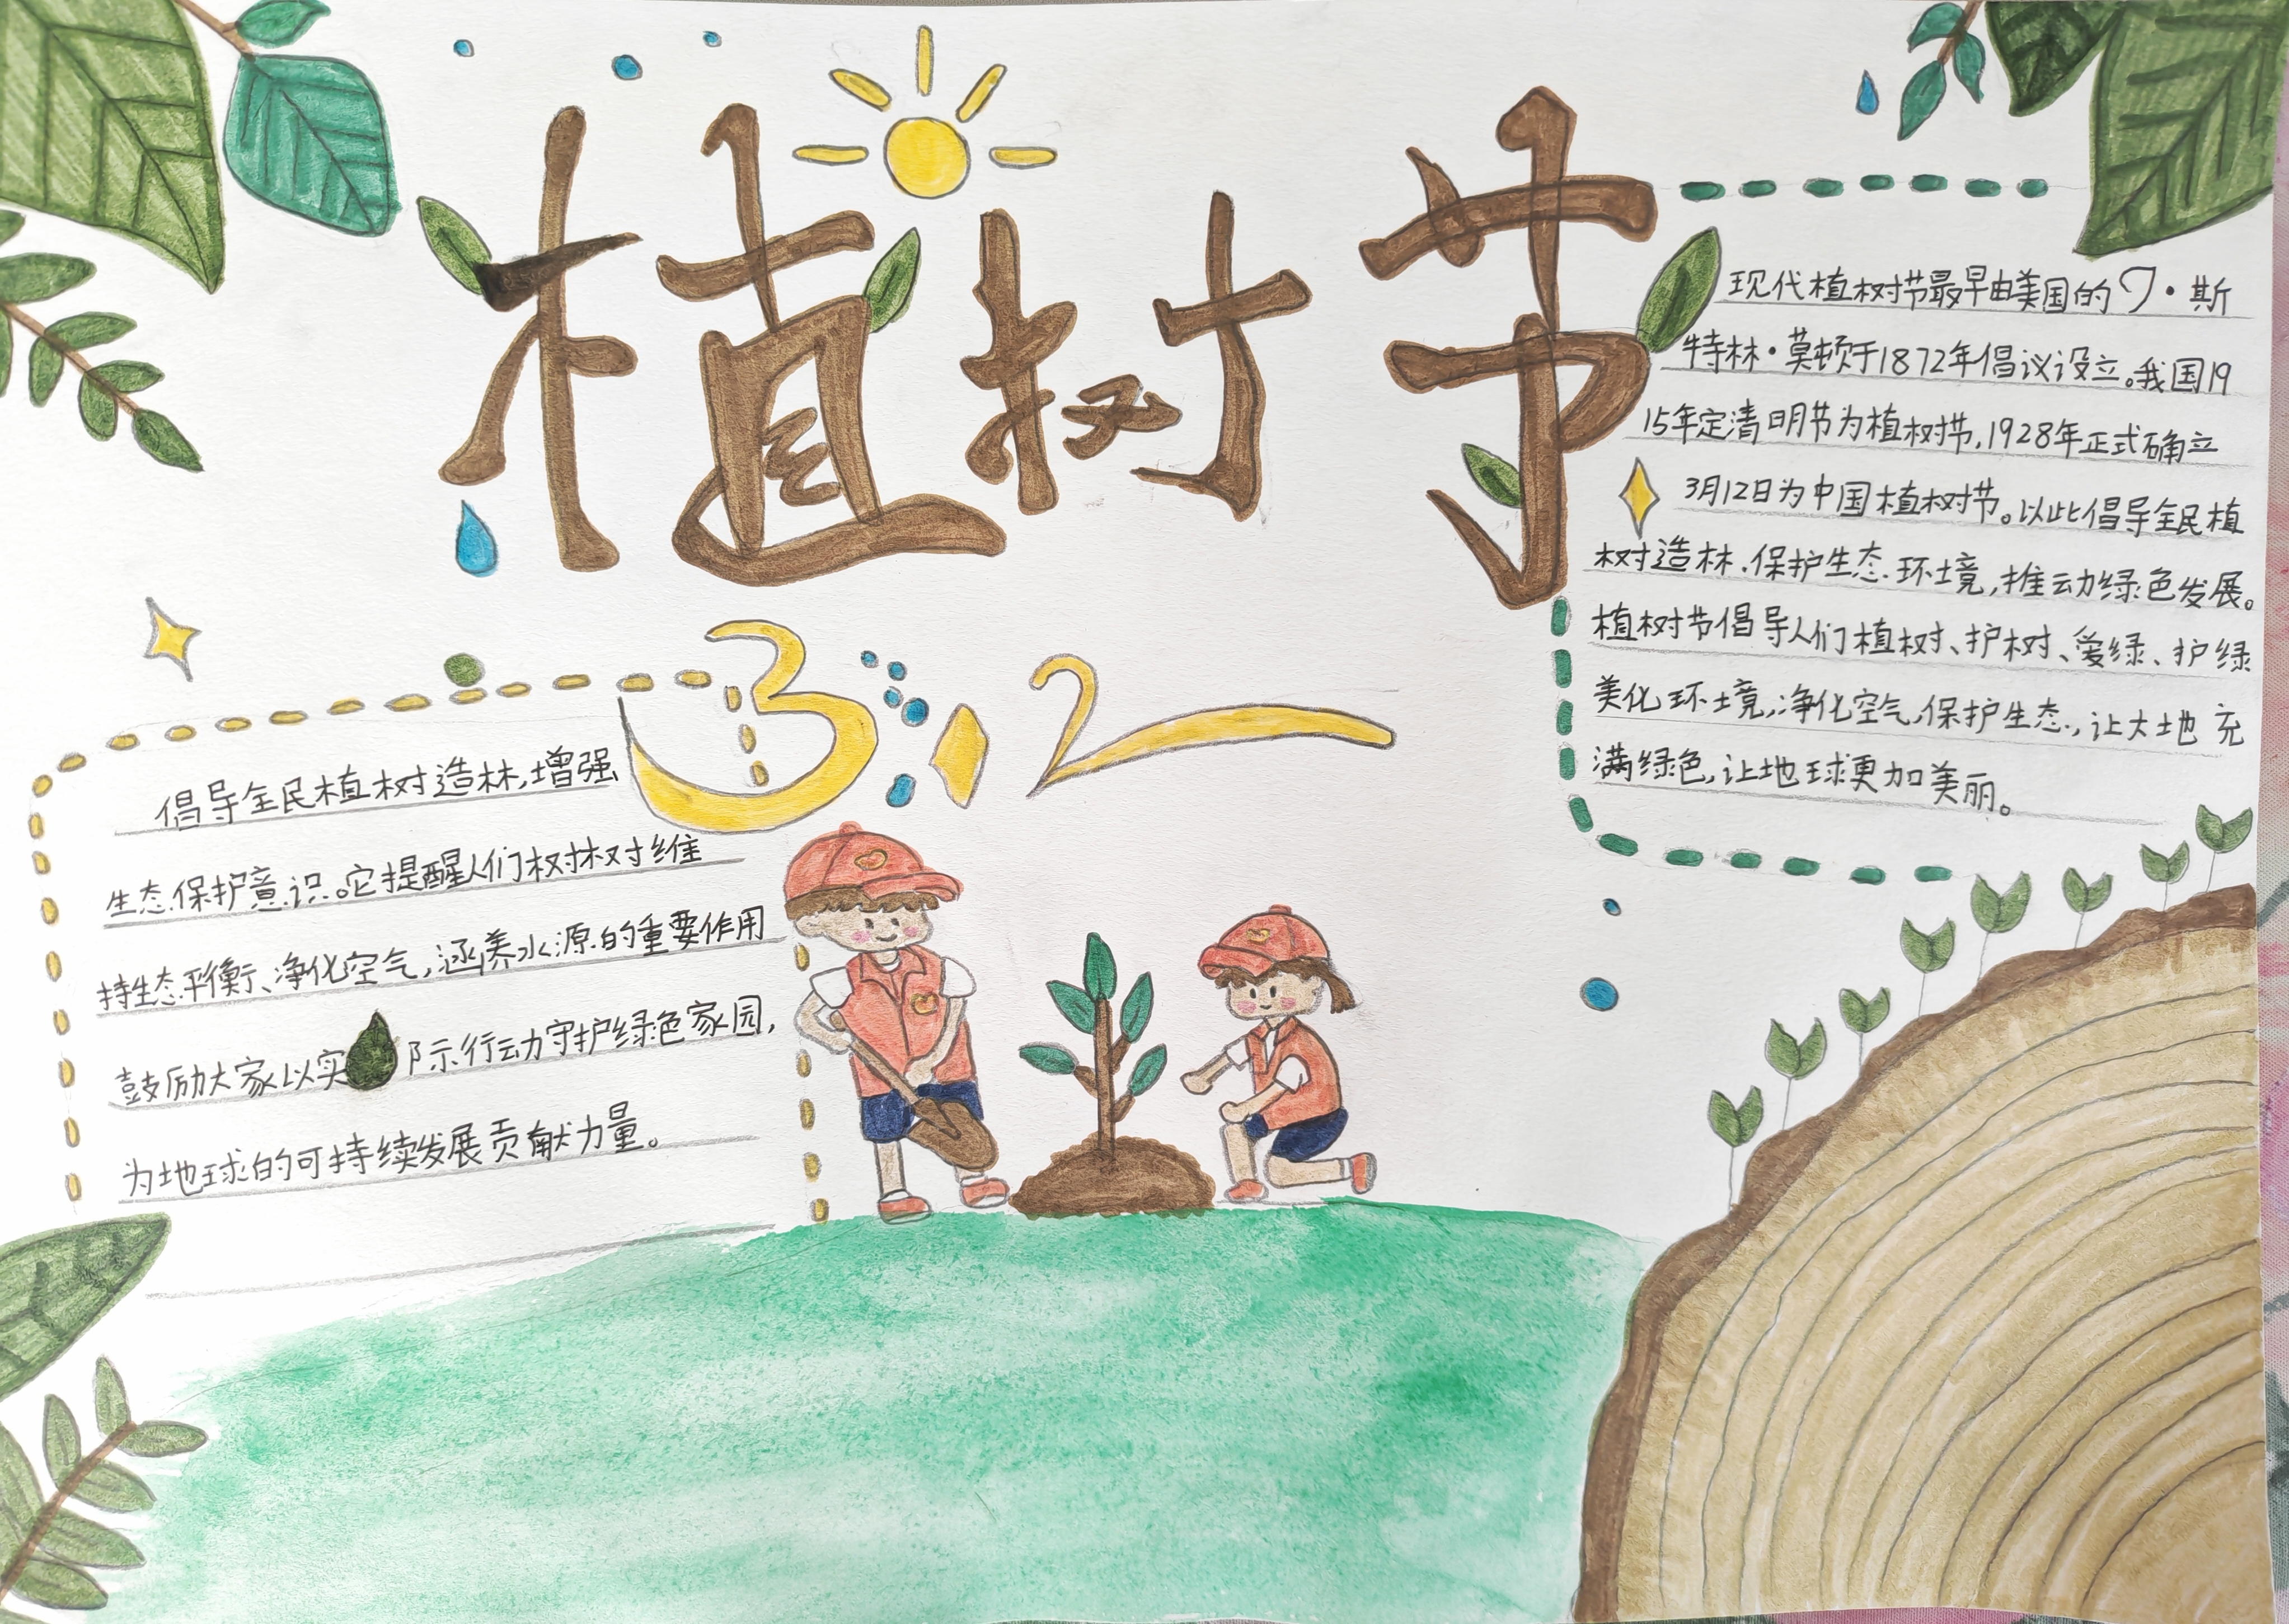 植树节
3·12
现代植树节最早由美国的J·斯
特林·莫顿于1872年倡议设立。我国19
15年定清明节为植树节,1928年正式确立
3月12日为中国植树节。以此倡导全民植
树造林,保护生态环境,推动绿色发展。
植树节倡导人们植树、护树、爱绿、护绿
美化环境,净化空气,保护生态,让大地充
满绿色,让地球更加美丽。
倡导全民植树造林,增强
生态保护意识。它提醒人们树树维
持生态平衡、净化空气,涵养水源的重要作用
鼓励大家以实际示行动守护绿色家园,
为地球的可持续发展贡献力量。